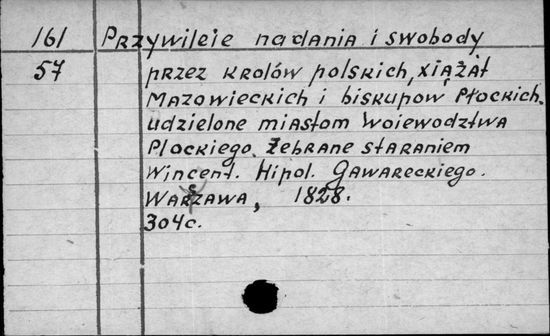 161 Przywileie nadania i swobody
57 przez krolów polskich, xiążąt
Mazowieckich i biskupow Płockich.
udzielone miastom Woiewodztwa
Plockiego. Żebrane staraniem
Wincent. Hipol. Gawareckiego.
Warszawa, 1828.
304c.